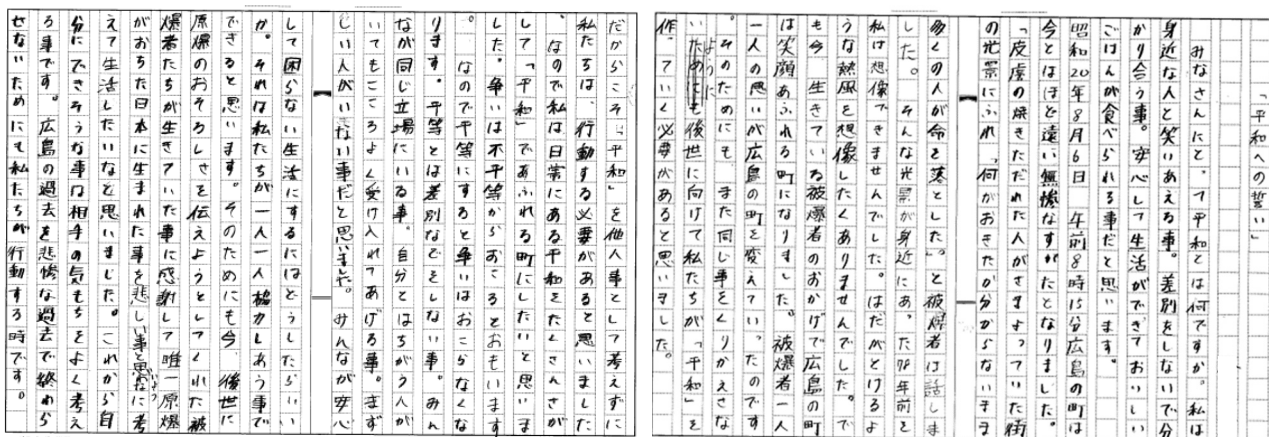 「平和への誓い」
みなさんにとって平和とは何ですか。私は
身近な人と笑いあえる事。差別をしないで分
かり合う事。安心して生活ができておいしい
ごはんが食べられる事だと思います。
昭和20年8月6日 午前8時15分広島の町は
今とはほど遠い無惨なすがたとなりました。
「皮膚の焼きただれた人がさまよっていた街
の光景にふれ「何がおきたか分からないまま
多くの人が命を落とした。」と被爆者は話しま
した。そんな光景が身近にあった78年前を
私は想像できませんでした。はだがとけるよ
うな熱風を想像したくありませんでした。で
も今、生きている被爆者のおかげで広島の町
は笑顔あふれる町になりました。被爆者一人
一人の思いが広島の町を変えていったのです
。そのためにも、また同じ事をくりかえさな
いように後世に向けて私たちが「平和」を
作っていく必要があると思いました。
だからこそ「平和」を他人事として考えずに
私たちは、行動する必要があると思いました
。なので私は日常にある平和をたくさんさが
して「平和」であふれる町にしたいと思いま
した。争いは不平等からおこるとおもいます
。なので平等にすると争いはおこらなくな
ります。平等とは差別などをしない事。みん
なが同じ立場にいる事。自分とはちがう人が
いてもこころよく受け入れてあげる事。まず
しい人がいない事だと思いました。みんなが安心
して困らない生活にするにはどうしたらいい
か。それは私たちが一人一人協力しあう事で
できると思います。そのためにも今、後世に
原爆のおそろしさを伝えようとしてくれた被
爆者たちが生きていた事に感謝して唯一原爆
がおちた日本に生まれた事を悲しい事と思わずに考
えて生活したいなと思いました。これから自
分にできそうな事は相手の気もちをよく考え
る事です。広島の過去を悲惨な過去で終わら
せないためにも私たちが行動する時です。